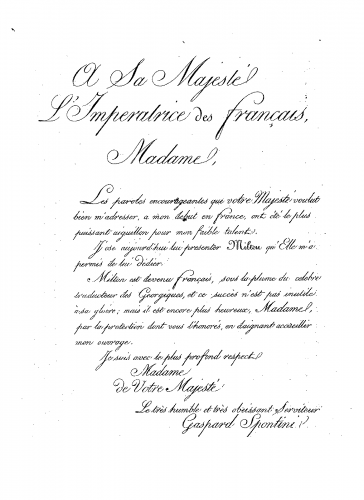 A Sa Majesté
L'Imperatrice des français,
Madame,
Les paroles encourageantes que votre Majesté voulut
bien m'adresser, a mon debut en france, ont été le plus
puissant aiguillon pour mon foible talent.
J'ose aujourd'hui lui presenter Milton qu'Elle m'a
permis de lui dédier.
Milton est devenu français, sous la plume du celebre
traducteur des Georgiques, et ce succès n'est pas inutile
a sa gloire; mais il est encore plus heureux, Madame,
par la protection dont vous l'honorés, en daignant accueillir
mon ouvrage.
Je suis avec le plus profond respect
Madame
de Votre Majesté
Le très humble et très obeissant Serviteur
Gaspard Spontini.